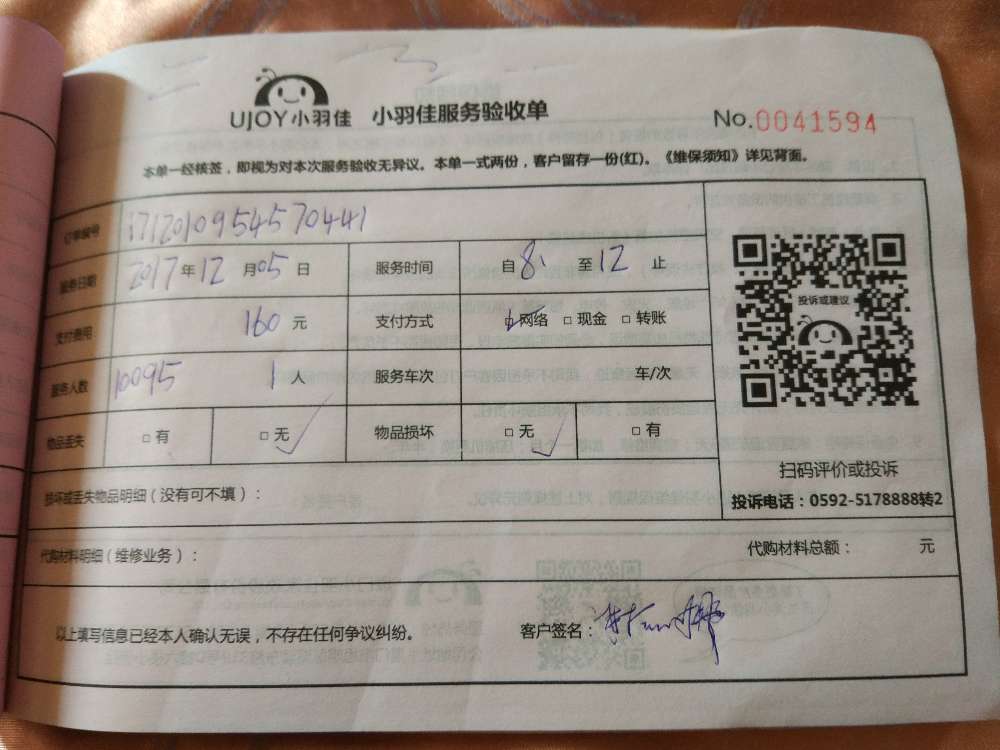 UJOY小羽佳 小羽佳服务验收单 No.0041594
本单一经核签，即视为对本次服务验收无异议。本单一式两份，客户留存一份(红)。《维保须知》详见背面。
订单编号 1712010954570441
服务日期 2017年12月05日 服务时间 自8:至12止
支付费用 160元 支付方式 □网络 □现金 □转账
投诉或建议
服务人数 10095 1人 服务车次 车/次
物品丢失 □有 □无✓ 物品损坏 □无✓ □有
扫码评价或投诉
损坏或丢失物品明细(没有可不填)：
投诉电话：0592-5178888转2
代购材料明细(维修业务)： 代购材料总额： 元
以上填写信息已经本人确认无误，不存在任何争议纠纷。 客户签名：